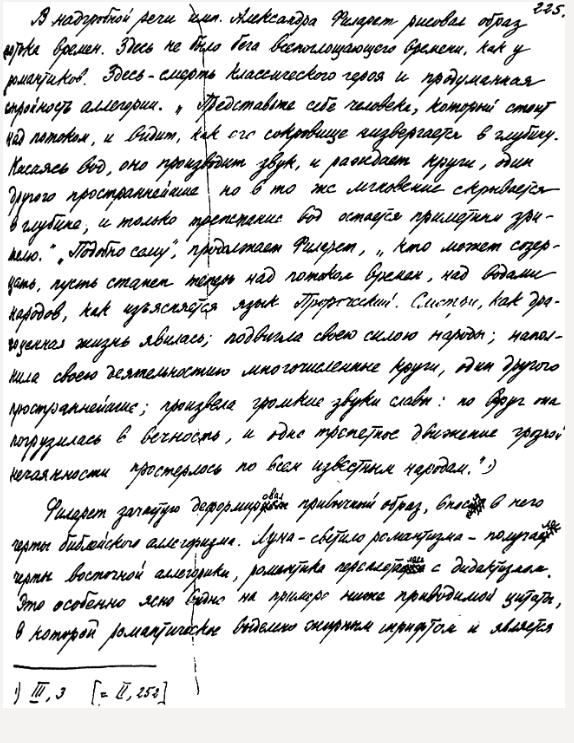 225.
В надгробной речи имп. Александра Филарет рисовал образ
потока времен. Здесь не было бега всепоглощающего времени, как у
романтиков. Здесь - смерть классического героя и продуманная
стройность аллегории. „Представьте себе человека, который стоит
над потоком, и видит, как его сокровище низвергается в глубину.
Касаясь вод, оно производит звук, и раждает круги, один
другого пространнейшие но в то же мгновение скрывается
в глубине, и только трепетение вод остается приметным зри-
телю." „Подобно сему", продолжает Филарет, „кто может созер-
цать, пусть станет теперь над потоком времен, над водами
народов, как изъясняется язык Пророческий. Смотри, как дра-
гоценная жизнь явилась; подвигла своею силою народы; напол-
нила своею деятельностию многочисленные круги, один другого
пространнейшие; произвела громкие звуки славы: но вдруг она
погрузилась в вечность, и одно трепетное движение грозной
нечаянности простерлось по всем известным народам." 1)
Филарет зачастую деформировал привычный образ, внося в него
черты библейского аллегоризма. Луна - светило романтизма - получала
черты восточной аллегорики, романтика переплеталась с дидактизмом.
Это особенно ясно видно на примере ниже приводимой цитаты,
в которой романтическое выделено жирным шрифтом и является
1) III, 3 [= II, 252]